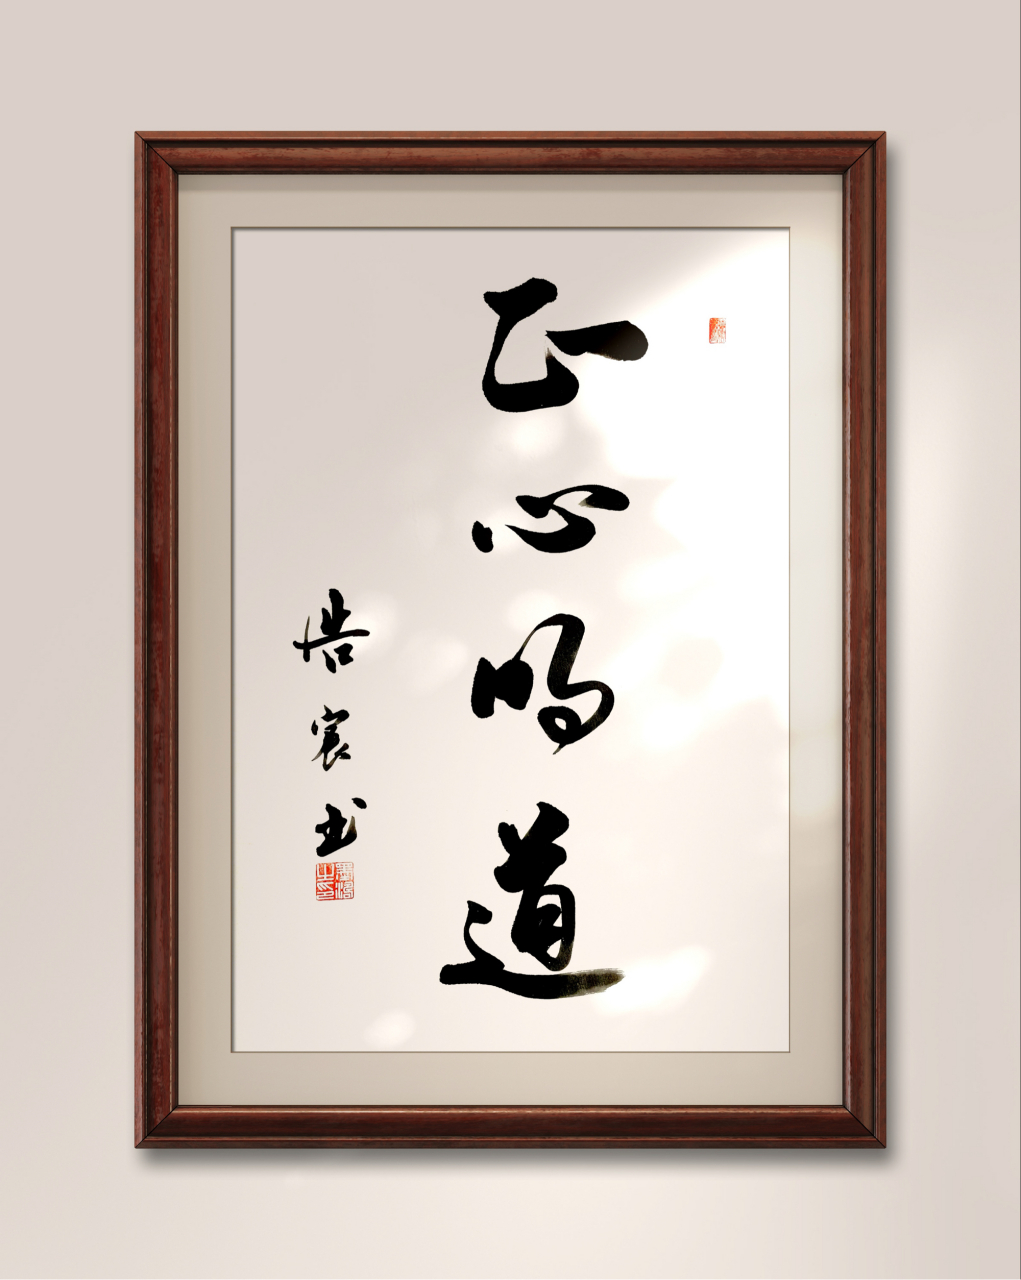 正心明道
浩宸书